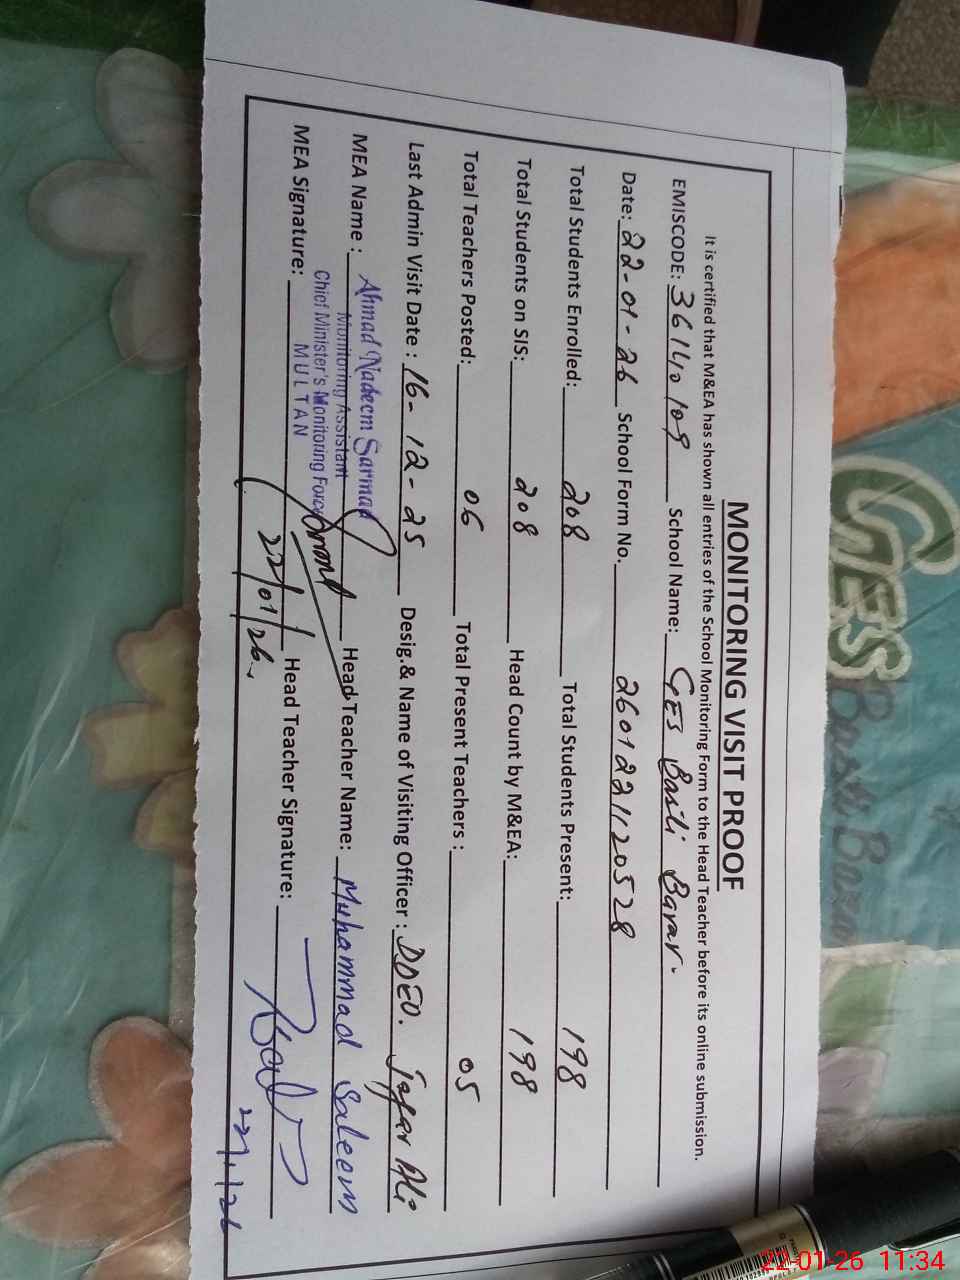 MONITORING VISIT PROOF
It is certified that M&EA has shown all entries of the School Monitoring Form to the Head Teacher before its online submission.
EMISCODE: 36140109 School Name: GES Basti Barar.
Date: 22-01-26 School Form No. 2601221120528
Total Students Enrolled: 208 Total Students Present: 198
Total Students on SIS: 208 Head Count by M&EA: 198
Total Teachers Posted: 06 Total Present Teachers : 05
Last Admin Visit Date : 16-12-25 Desig.& Name of Visiting Officer : DDEO. Jafar Ali
MEA Name : Ahmad Nadeem Sarmad Head Teacher Name: Muhammad Saleem
Monitoring Assistant
Chief Minister's Monitoring Force
MULTAN
MEA Signature: 22/01/26. Head Teacher Signature: 22/1/26
GES
Basti Barar
22-01-26 11:34